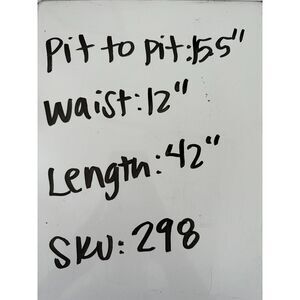 Pit to pit: 15.5"
Waist: 12"
Length: 42"
SKU: 298